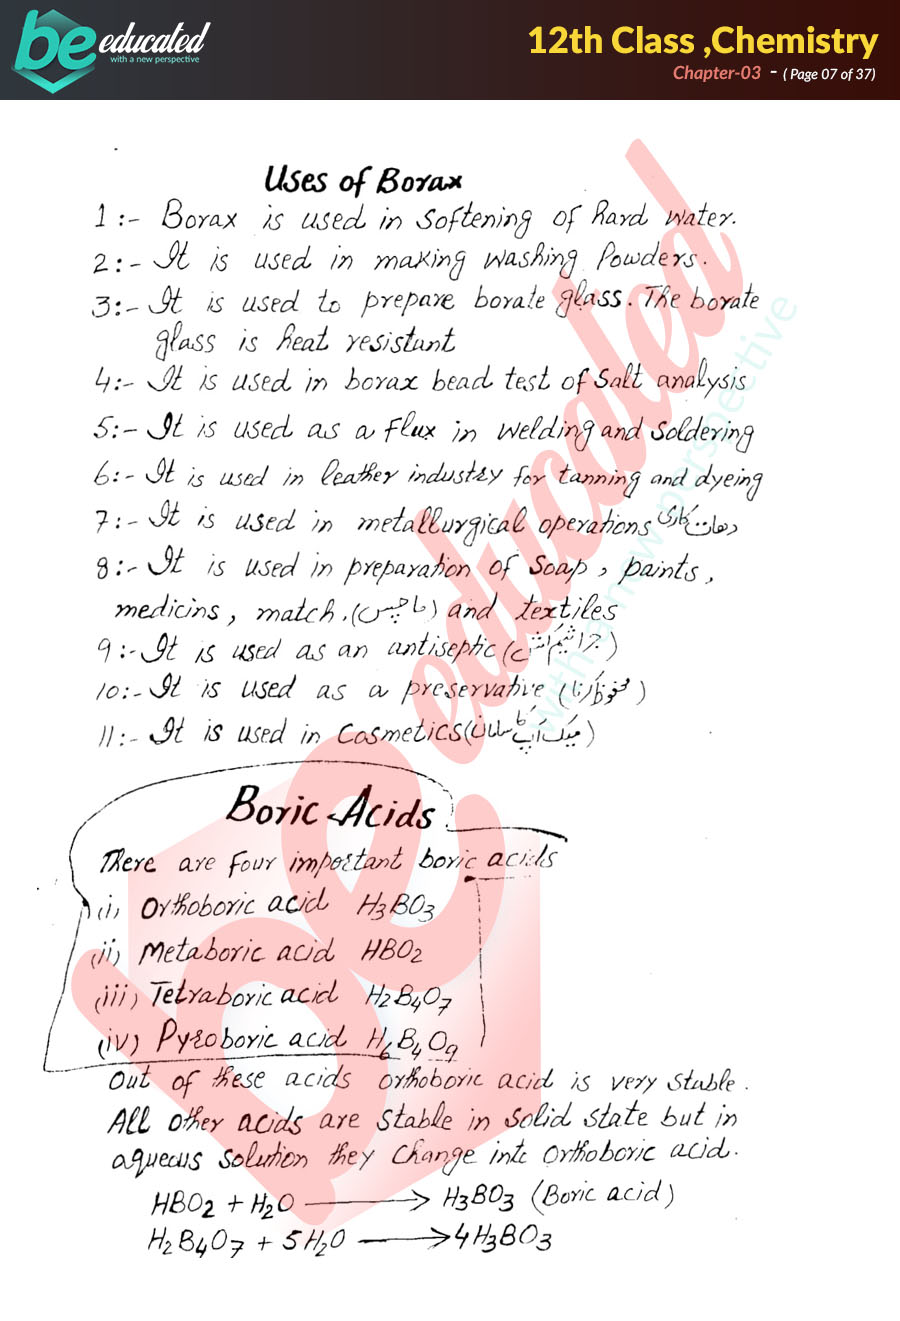 be educated
with a new perspective
12th Class ,Chemistry
Chapter-03 - ( Page 07 of 37)
Uses of Borax
1:- Borax is used in softening of hard water.
2:- It is used in making washing Powders.
3:- It is used to prepare borate glass. The borate
glass is heat resistant
4:- It is used in borax bead test of Salt analysis
5:- It is used as a flux in welding and soldering
6:- It is used in leather industry for tanning and dyeing
7:- It is used in metallurgical operations دھات کاری
8:- It is used in preparation of Soap, paints,
medicins, match.(ماچس) and textiles
9:- It is used as an antiseptic (جراثیم کش)
10:- It is used as a preservative (محفوظ کرنا)
11:- It is used in Cosmetics (میک اپ کا سامان)
Boric Acids
There are four important boric acids
(i) Orthoboric acid H3BO3
(ii) Metaboric acid HBO2
(iii) Tetraboric acid H2B4O7
(iv) Pyroboric acid H6B4O9
Out of these acids orthoboric acid is very stable.
All other acids are stable in solid state but in
aqueous solution they change into orthoboric acid.
HBO2 + H2O ⟶ H3BO3 (Boric acid)
H2B4O7 + 5H2O ⟶ 4H3BO3
be educated
with a new perspective